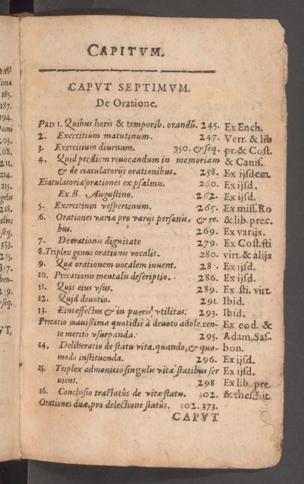 CAPITVM.
CAPVT SEPTIMVM.
De Oratione.
Pars 1. Quibus horis & temporib. orandū. 245. Ex Ench.
2. Exercitium matutinum. 247. Verr. & lib
3. Exercitium diurnum. 350. & seq. pr. & Cost.
4. Quid per diem reuocandum in memoriam & Canis.
& de eiaculatorijs orationibus. 258. Ex ijsdem.
Eiaculatoria orationes ex psalmis. 260. Ex ijsd.
Ex B. Augustino. 262. Ex ijsd.
5. Exercitium vespertinum. 265. Ex miss. Ro
6. Orationes varia pro varijs personis, & re. & lib. prec.
bus. 269. Ex varijs.
7. De orationis dignitate 279. Ex Cost. sti
8. Triplex genus orationis vocalis. 280. virt. & alijs
9. Qua orationem vocalem iuuent. 28 . Ex ijsd.
10. Precationis mentalis descriptio. 286. Ex ijsd.
11. Quis eius vsus. 289. Ex sti. virt.
12. Quid deuotio. 291. Ibid.
13. Eius effectus & in pueris vtilitas. 293. Ibid.
Precatio quotidiè à deuoto adolescen- Ex eod. &
te meritò vsurpanda. 295. Adam. Sas-
14. Deliberatio de statu vitæ, quando, & quo- bon.
modo instituenda. 296. Ex ijsd.
15. Triplex admonitio singulis vitæ statibus ser Ex ijsd.
uiens. 298 Ex lib. pre.
16. Conclusio tractatûs de vitæ statu. 302. &
Orationes duæ, pro delectione status. 302. 373.
CAPVT